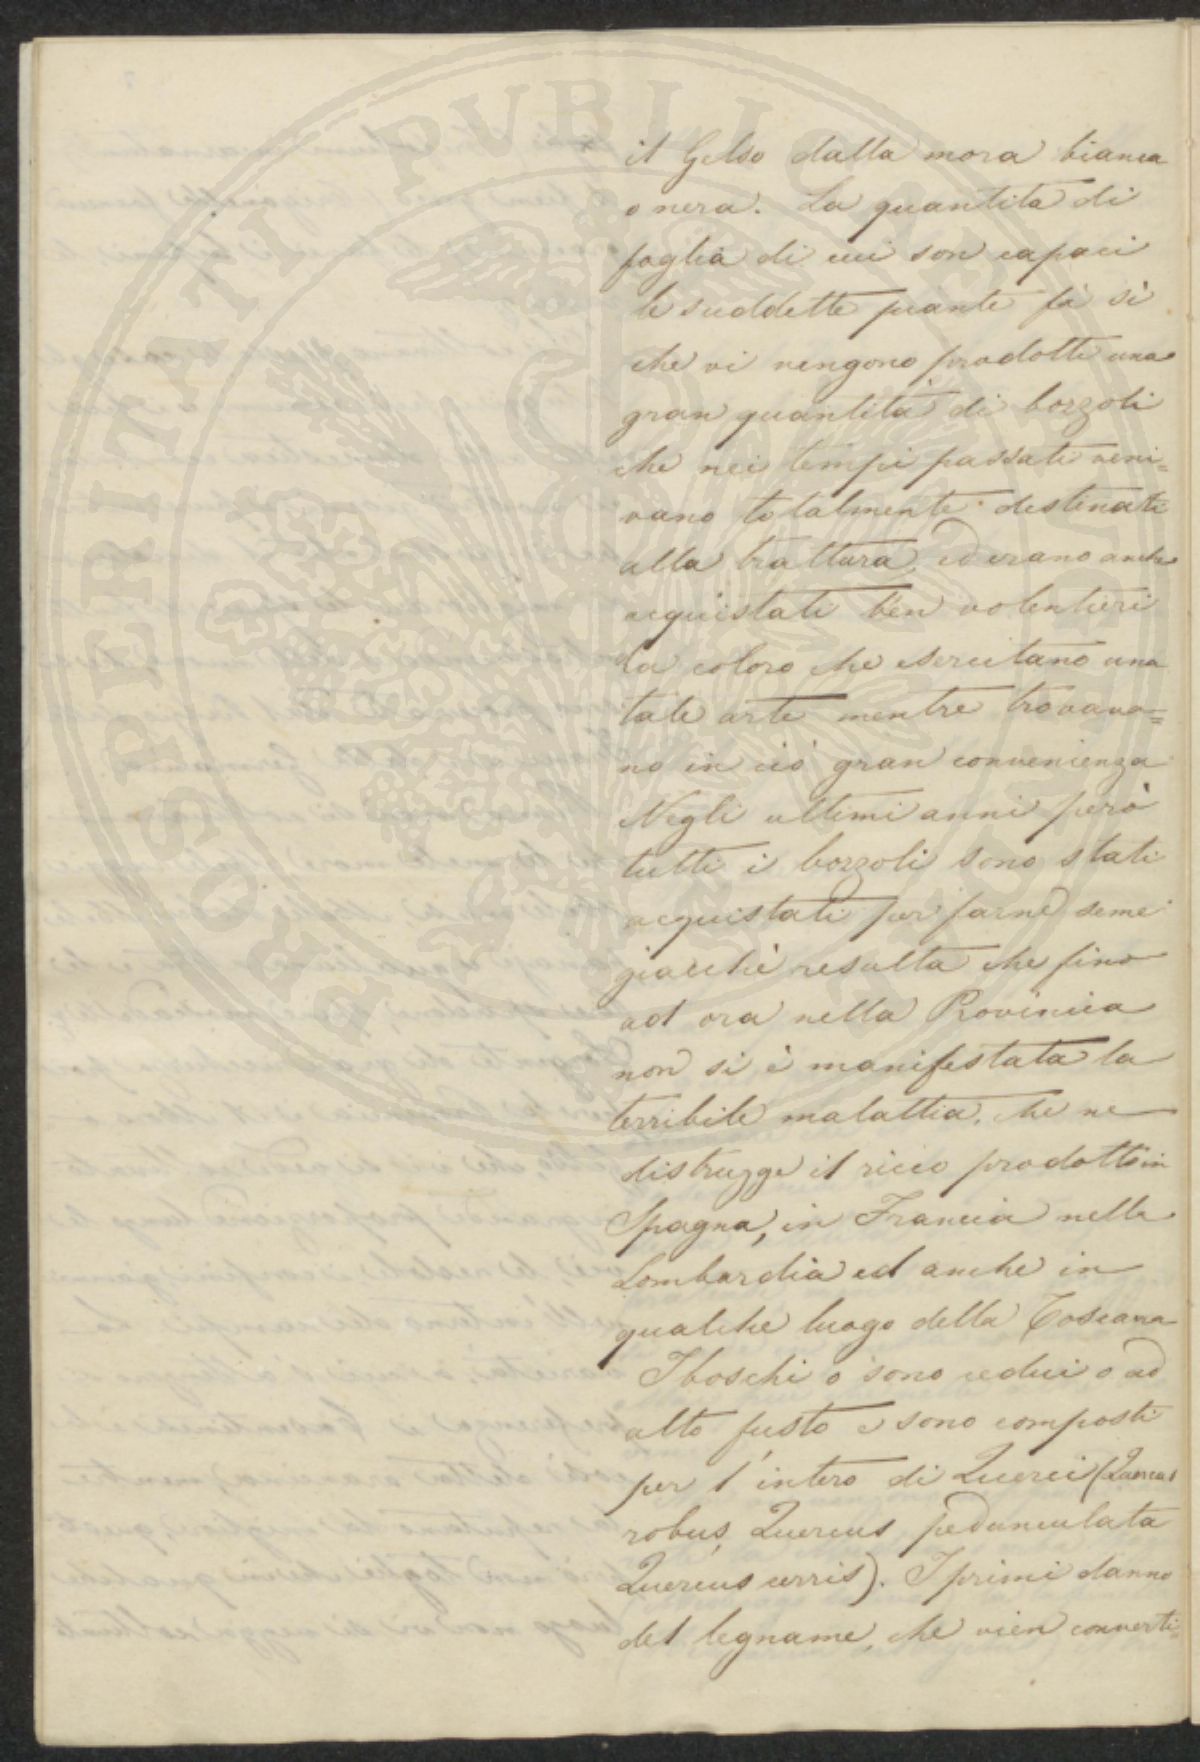 il Gelso dalla mora bianca
o nera. La quantità di
foglia di cui son capaci
le suddette piante fà sì
che vi vengono prodotti una
gran quantità di bozzoli
che nei tempi passati veni=
vano totalmente destinati
alla trattura, ed erano anche
acquistati ben volentieri
da coloro che esercitano una
tale arte mentre trovava=
no in ciò gran convenienza
Negli ultimi anni però
tutti i bozzoli sono stati
acquistati per farne seme
giacchè resulta che fino
ad ora nella Provincia
non si è manifestata la
terribile malattia, che ne
distrugge il ricco prodotto in
Spagna, in Francia nella
Lombardia ed anche in
qualche luogo della Toscana
I boschi o sono cedui o ad
alto fusto e sono composti
per l'intero di Querci (Quercus
robus, Quercus pedunculata
Quercus cerris). I primi danno
del legname, che vien converti=
PROSPERITATI PUBLICAE